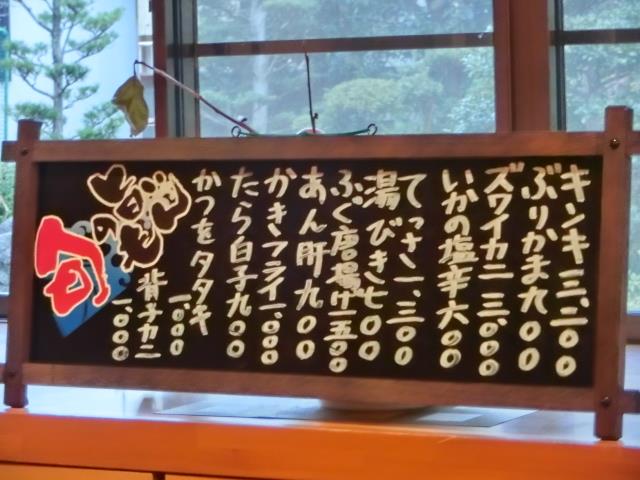 キンキ三、二〇〇
ぶりかま九〇〇
ズワイカニ三、〇〇〇
いかの塩辛六〇〇
てっさ一、三〇〇
湯びき七〇〇
ふぐ唐揚げ一五〇〇
あん肝九〇〇
かきフライ一、〇〇〇
たら白子九〇〇
かつをタタキ
一、〇〇〇
背子カニ
一、〇〇〇
旬